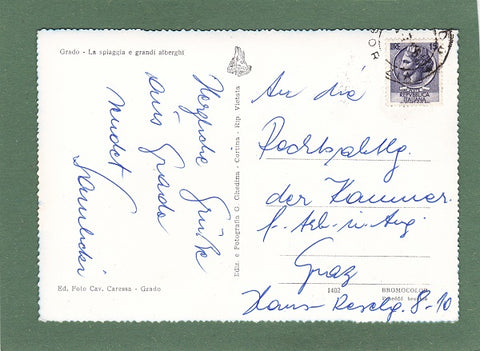 Grado - La spiaggia e grandi alberghi
Herzliche Grüße
aus Grado
sendet
Ediz. e Fotografia G. Ghedina - Cortina - Rip. Vietata
An die
Rechtsabtlg.
der Kammer
f. Arb. in Ang.
Graz
Hans-Reselg. 8-10
Ed. Foto Cav. Caressa - Grado
1402
BROMOCOLOR